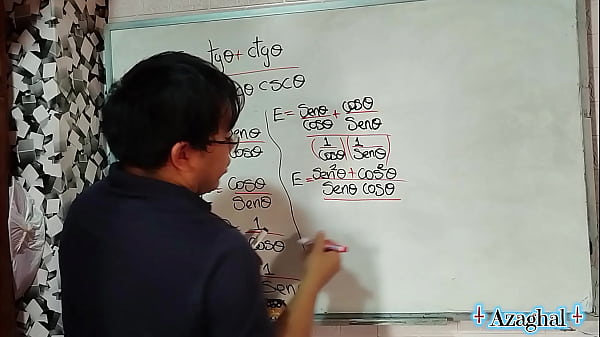 tgθ + ctgθ
θ cscθ
E = Senθ/Cosθ + Cosθ/Senθ
(1/Cosθ)(1/Senθ)
E = Sen²θ + Cos²θ
Senθ Cosθ
Senθ
Cosθ
Cosθ
Senθ
1
Cosθ
1
Senθ
Azaghal